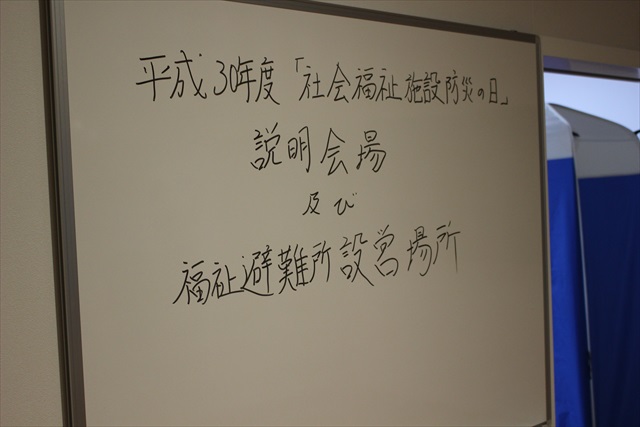 平成30年度「社会福祉施設防災の日」
説明会場
及び
福祉避難所設営場所